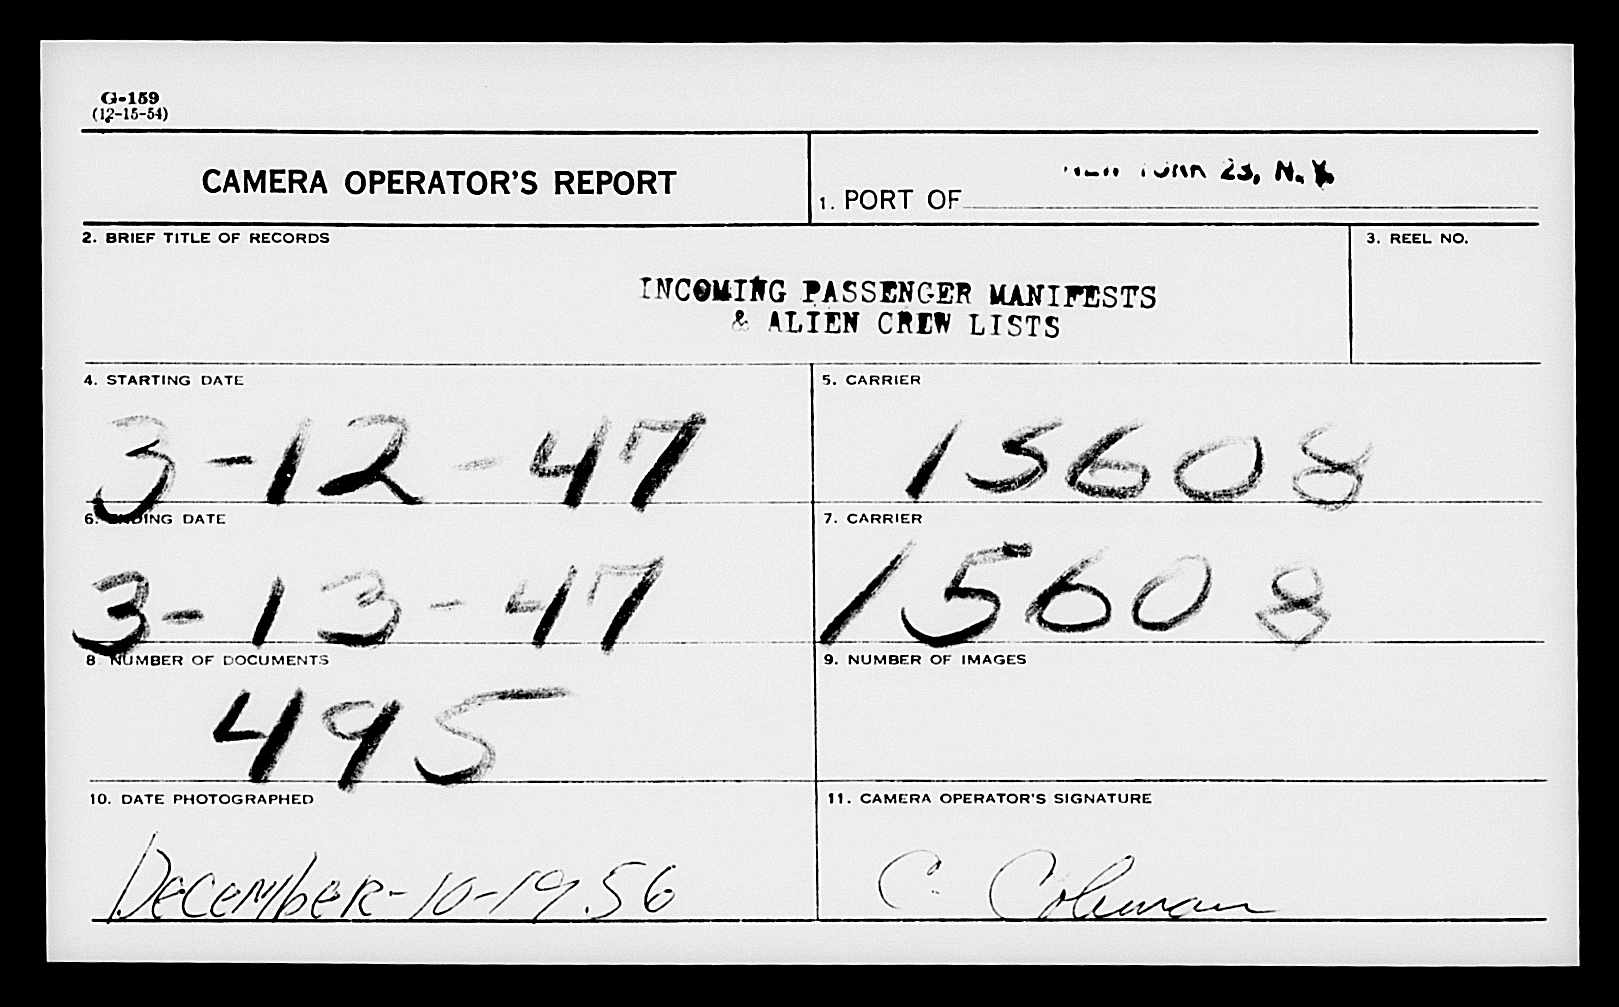 G-159
(12-15-54)
CAMERA OPERATOR'S REPORT
1. PORT OF NEW YORK 23, N. Y.
2. BRIEF TITLE OF RECORDS
3. REEL NO.
INCOMING PASSENGER MANIFESTS
& ALIEN CREW LISTS
4. STARTING DATE
5. CARRIER
3-12-47
15608
6. ENDING DATE
7. CARRIER
3-13-47
15608
8. NUMBER OF DOCUMENTS
9. NUMBER OF IMAGES
495
10. DATE PHOTOGRAPHED
11. CAMERA OPERATOR'S SIGNATURE
DECEMBER-10-1956
C. Coleman